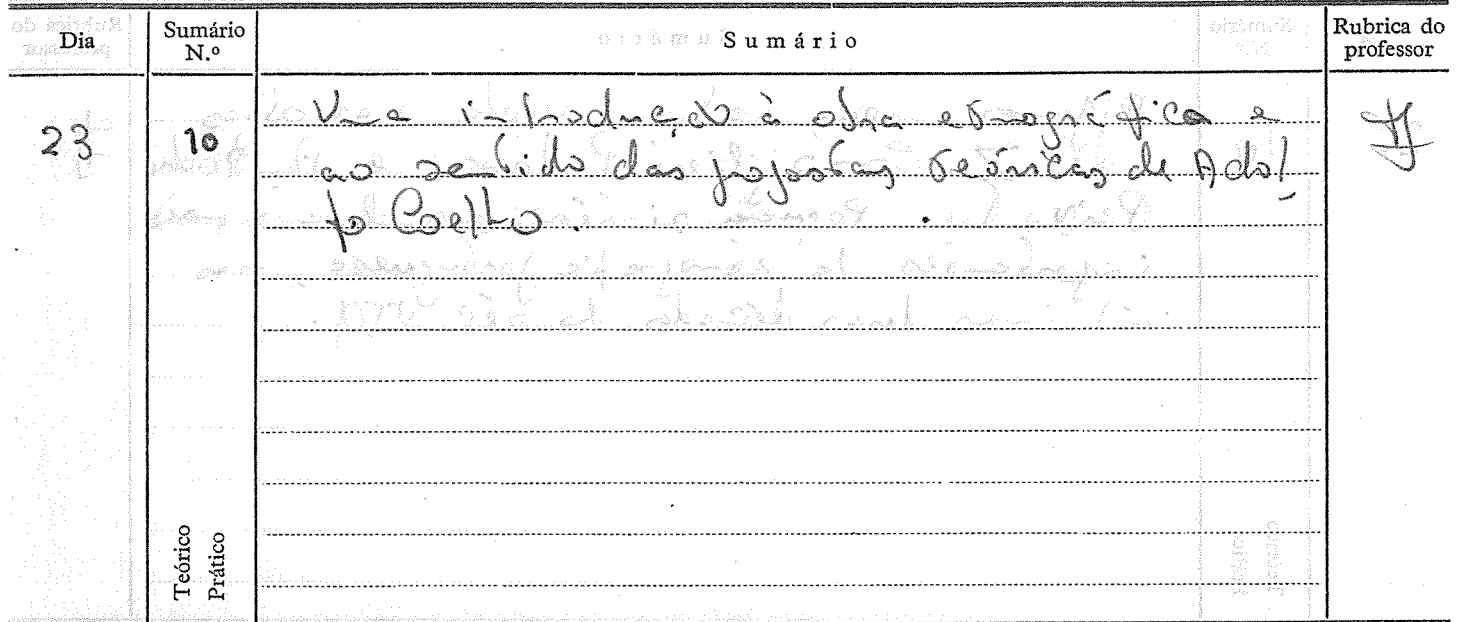 Dia
Sumário N.º
Sumário
Rubrica do professor
23
10
Uma introdução à obra etnográfica e
ao sentido das propostas teóricas de Adol
fo Coelho.
Teórico
Prático